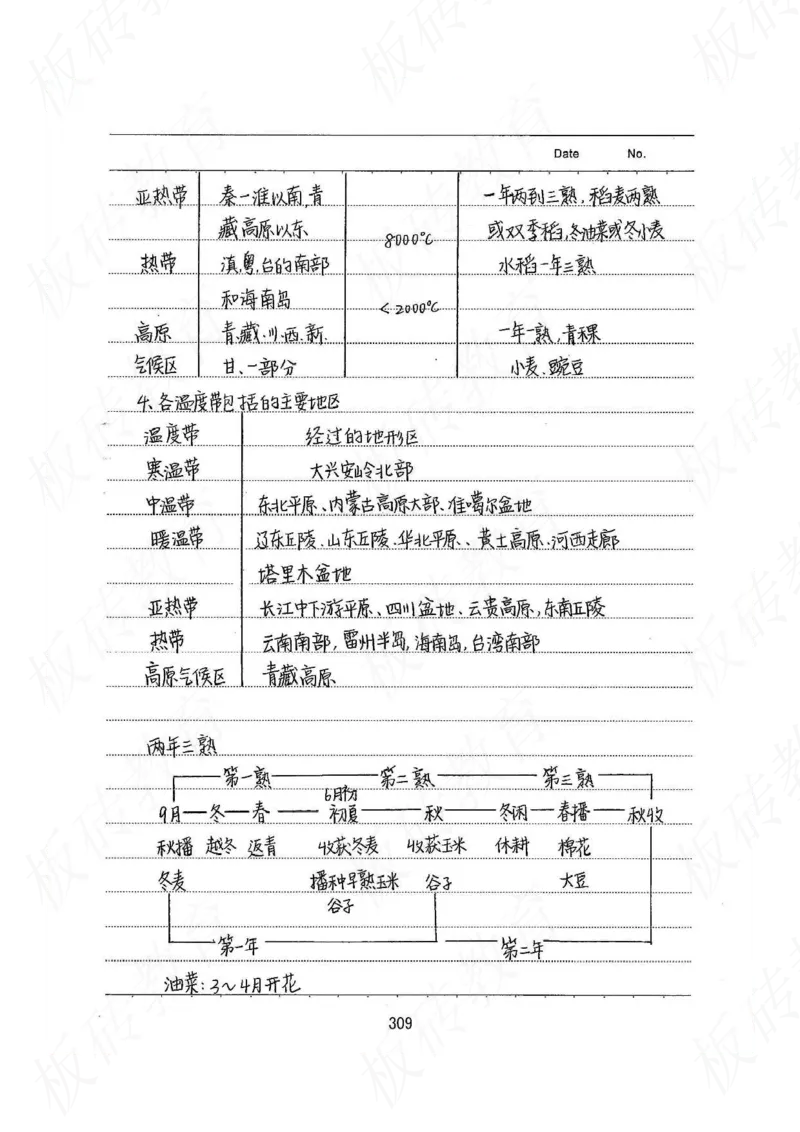 Date No.
亚热带 秦一淮以南,青 一年两到三熟,稻麦两熟
藏高原以东 8000℃ 或双季稻,冬油菜或冬小麦
热带 滇,粤,台的南部 水稻一年三熟
和海南岛 <2000℃
高原 青.藏.川.西.新. 一年一熟,青稞
气候区 甘、一部分 小麦.豌豆
4、各温度带包括的主要地区
温度带 经过的地形区
寒温带 大兴安岭北部
中温带 东北平原、内蒙古高原大部、准噶尔盆地
暖温带 辽东丘陵.山东丘陵.华北平原、黄土高原.河西走廊
塔里木盆地
亚热带 长江中下游平原、四川盆地、云贵高原,东南丘陵
热带 云南南部,雷州半岛,海南岛,台湾南部
高原气候区 青藏高原
两年三熟
第一熟 第二熟 第三熟
6月初
9月 冬 春 初夏 秋 冬闲 春播 秋收
秋播 越冬 返青 收获冬麦 收获玉米 休耕 棉花
冬麦 播种早熟玉米 谷子 大豆
谷子
第一年 第二年
油菜:3~4月开花
309
板砖教育